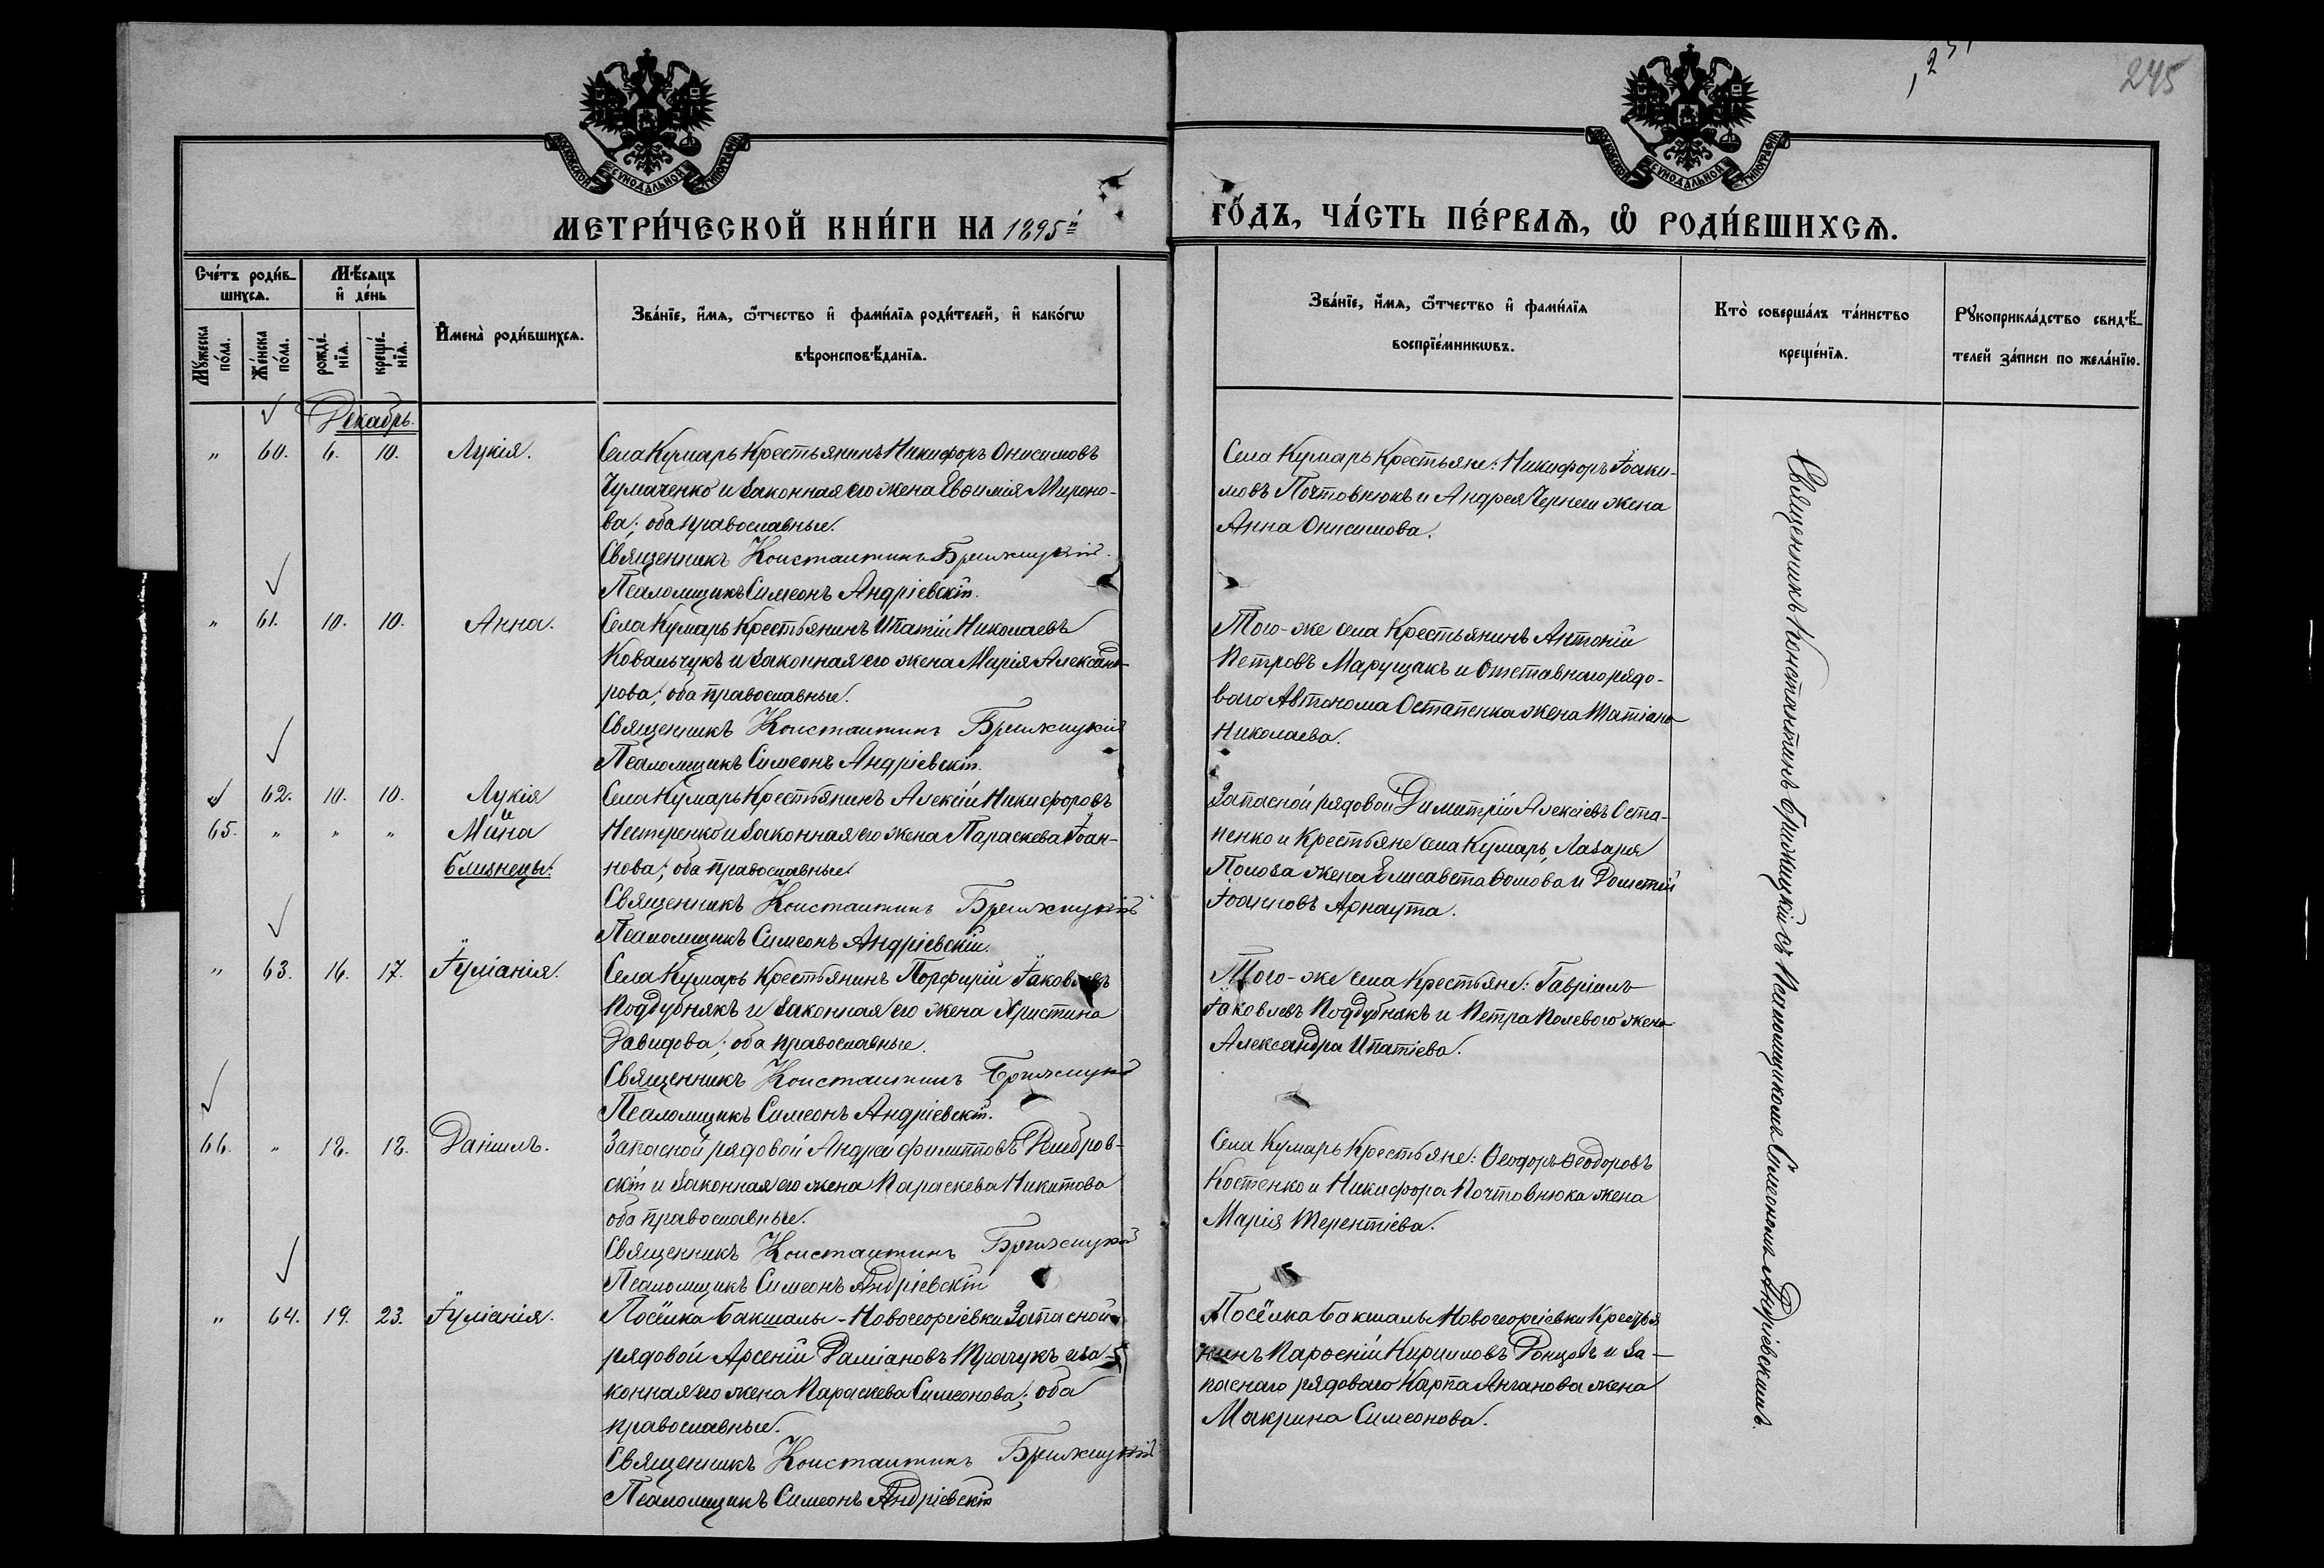 245
МОСКОВСКОЙ СѴНОДАЛЬНОЙ ТИПОГРАФІИ
МОСКОВСКОЙ СѴНОДАЛЬНОЙ ТИПОГРАФІИ
МЕТРИ́ЧЕСКОЙ КНИ́ГИ НА 1895й
ГО́ДЪ, ЧА́СТЬ ПЕ́РВАѦ, Ѡ РОДИ́ВШИХСѦ.
Сче́тъ роди́в-
шихсѧ.
Мꙋ́жеска по́ла.
Же́нска по́ла.
Мѣ́сѧцъ
и де́нь
рожде́нїѧ.
креще́нїѧ.
Имена̀ роди́вшихсѧ.
Зва́нїе, и́мѧ, ѻ҆́тчество и фами́лїѧ роди́телей, и како́гѡ
вѣроисповѣ́данїѧ.
Зва́нїе, и́мѧ, ѻ҆́тчество и фами́лїѧ
воспрїе́мникѡвъ.
Кто̀ соверша́лъ та́инство
креще́нїѧ.
Рꙋкоприкла́дство свидѣ́-
телей за́писи по жела́нїю.
Декабрь.
" 60. 6. 10. Лукія.
Села Кумарь Крестьянинъ Никифоръ Онисимовъ
Чумаченко и законная его жена Евѳимія Мироно-
ва; оба православные.
Священникъ Константинъ Брижицкій.
Псаломщикъ Симеонъ Андріевскій.
Села Кумарь Крестьяне: Никифоръ Іоаки-
мовъ Почтовнюкъ и Андрея Чернеи жена
Анна Онисимова.
" 61. 10. 10. Анна.
Села Кумарь Крестьянинъ Ипатій Николаевъ
Ковальчукъ и законная его жена Марія Александ-
рова; оба православные.
Священникъ Константинъ Брижицкій
Псаломщикъ Симеонъ Андріевскій.
Того-же села Крестьянинъ Антоній
Петровъ Марущакъ и Отставнаго рядо-
ваго Автонома Остапенка жена Татіана
Николаева.
62. 10. 10. Лукія
65. " " " Мина
близнецы.
Села Кумарь Крестьянинъ Алексій Никифоровъ
Нестеренко и законная его жена Параскева Іоан-
нова; оба православные.
Священникъ Константинъ Брижицкій
Псаломщикъ Симеонъ Андріевскій.
Запасной рядовой Димитрій Алексіевъ Оста-
пенко и Крестьяне села Кумарь, Лазаря
Попова жена Елисавета Ѳомова и Дометій
Іоанновъ Арнаута.
" 63. 16. 17. Іуліанія.
Села Кумарь Крестьянинъ Порфирій Іаковлевъ
Поддубнякъ и законная его жена Христина
Давидова; оба православные.
Священникъ Константинъ Брижицкій
Псаломщикъ Симеонъ Андріевскій.
Того-же села Крестьяне: Гавріилъ
Іаковлевъ Поддубнякъ и Петра Полевого жена
Александра Ипатіева.
66. " 12. 12. Даніилъ.
Запасной рядовой Андрей Филипповъ Домбров-
скій и законная его жена Параскева Никитова
оба православные.
Священникъ Константинъ Брижицкій
Псаломщикъ Симеонъ Андріевскій
Села Кумарь Крестьяне: Ѳеодоръ Ѳеодоровъ
Костенко и Никифора Почтовнюка жена
Марія Терентіева.
" 64. 19. 23. Іуліанія.
Посёлка Бакшалы-Новогеоргіевки Запасной
рядовой Арсеній Даміановъ Ткачукъ и за-
конная его жена Параскева Симеонова; оба
православные.
Священникъ Константинъ Брижицкій
Псаломщикъ Симеонъ Андріевскій
Посёлка Бакшалы Новогеоргіевки Крестья
нинъ Парѳеній Кирилловъ Донцовъ и За-
паснаго рядоваго Карпа жена
Макрина Симеонова.
Священникъ Константинъ Брижицкій съ Псаломщикомъ Симеономъ Андріевскимъ.